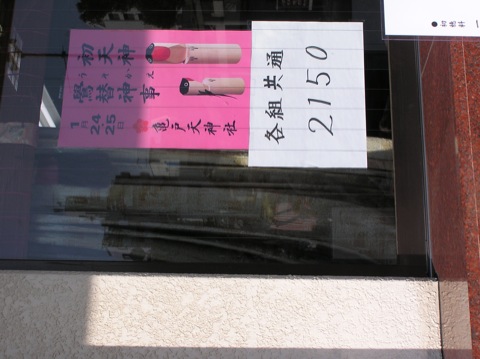 初天神
うそかえ
鷽替神事
1月24・25日
亀戸天神社
各組共通
2150
●初穂料 一